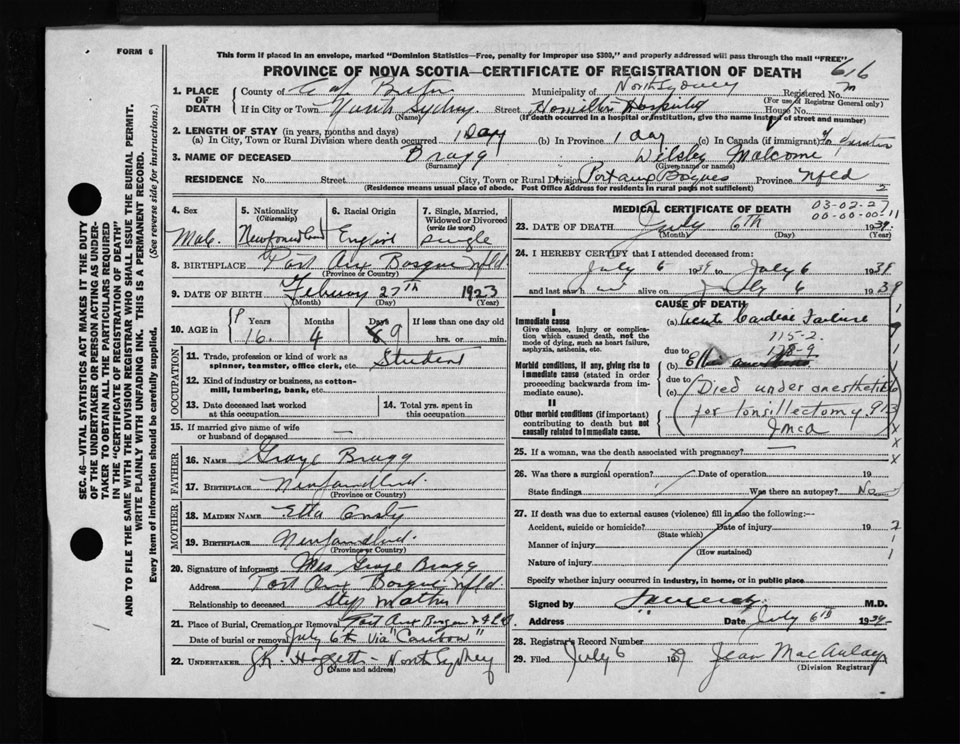 FORM 6
This form if placed in an envelope, marked "Dominion Statistics—Free, penalty for improper use $300," and properly addressed will pass through the mail "FREE"
PROVINCE OF NOVA SCOTIA—CERTIFICATE OF REGISTRATION OF DEATH
616
SEC. 46—VITAL STATISTICS ACT MAKES IT THE DUTY
OF THE UNDERTAKER OR PERSON ACTING AS UNDER-
TAKER TO OBTAIN ALL THE PARTICULARS REQUIRED
IN THE "CERTIFICATE OF REGISTRATION OF DEATH"
AND TO FILE THE SAME WITH THE DIVISION REGISTRAR WHO SHALL ISSUE THE BURIAL PERMIT.
WRITE PLAINLY WITH UNFADING INK. THIS IS A PERMANENT RECORD.
Every item of information should be carefully supplied. (See reverse side for instructions.)
1. PLACE OF DEATH
County of Cape Breton Municipality of North Sydney Registered No.
(For use of Registrar General only)
If in City or Town North Sydney Street Hamilton Hospital House No.
(Name) (If death occurred in a hospital or institution, give the name instead of street and number)
2. LENGTH OF STAY (in years, months and days)
(a) In City, Town or Rural Division where death occurred 1 Day (b) In Province 1 day (c) In Canada (if immigrant)
3. NAME OF DECEASED Bragg Wilsby Malcome
(Surname) (Given name or names)
RESIDENCE No. Street City, Town or Rural Division Port aux Basques Province Nfld
(Residence means usual place of abode. Post Office Address for residents in rural parts not sufficient)
2
4. Sex
Male
5. Nationality
(Citizenship)
Newfoundland
6. Racial Origin
English
7. Single, Married, Widowed or Divorced
(write the word)
single
8. BIRTHPLACE Port Aux Basque Nfld
(Province or Country)
9. DATE OF BIRTH Februay 27th 1923
(Month) (Day) (Year)
10. AGE in
Years
16
Months
4
Days
9
If less than one day old
hrs. or min.
OCCUPATION
11. Trade, profession or kind of work as spinner, teamster, office clerk, etc. Student
12. Kind of industry or business, as cotton-mill, lumbering, bank, etc.
13. Date deceased last worked at this occupation
14. Total yrs. spent in this occupation
15. If married give name of wife or husband of deceased —
FATHER
16. NAME Bragg
17. BIRTHPLACE Newfoundland.
(Province or Country)
MOTHER
18. MAIDEN NAME Etta
19. BIRTHPLACE Newfoundland.
(Province or Country)
20. Signature of informant Mrs Bragg
Address Port Aux Basque Nfld.
Relationship to deceased Step Mother
21. Place of Burial, Cremation or Removal Port Aux Basque Nfld
Date of burial or removal July 6th Via "Caribou"
22. UNDERTAKER North Sydney
(Name and address)
MEDICAL CERTIFICATE OF DEATH
03-02-27
00-00-00-11
23. DATE OF DEATH July 6th 1939.
(Month) (Day) (Year)
24. I HEREBY CERTIFY that I attended deceased from:
July 6 1939 to July 6 1939
and last saw h im alive on July 6 1939
CAUSE OF DEATH
I
Immediate cause
Give disease, injury or complication which caused death, not the mode of dying, such as heart failure, asphyxia, asthenia, etc.
(a) Acute Cardiac Failure
115-2.
due to
(b)
Morbid conditions, if any, giving rise to immediate cause (stated in order proceeding backwards from immediate cause).
due to
(c) Died under anesthetic
II
Other morbid conditions (if important) contributing to death but not causally related to immediate cause.
for tonsillectomy
25. If a woman, was the death associated with pregnancy? —
26. Was there a surgical operation? Date of operation 19
State findings Was there an autopsy? No
27. If death was due to external causes (violence) fill in also the following:—
Accident, suicide or homicide? Date of injury 19
(State which)
Manner of injury
(How sustained)
Nature of injury
Specify whether injury occurred in industry, in home, or in public place
Signed by M.D.
Address " " Date July 6th 1939.
28. Registrar's Record Number
29. Filed July 6 1939 Jean MacAulay
(Division Registrar)